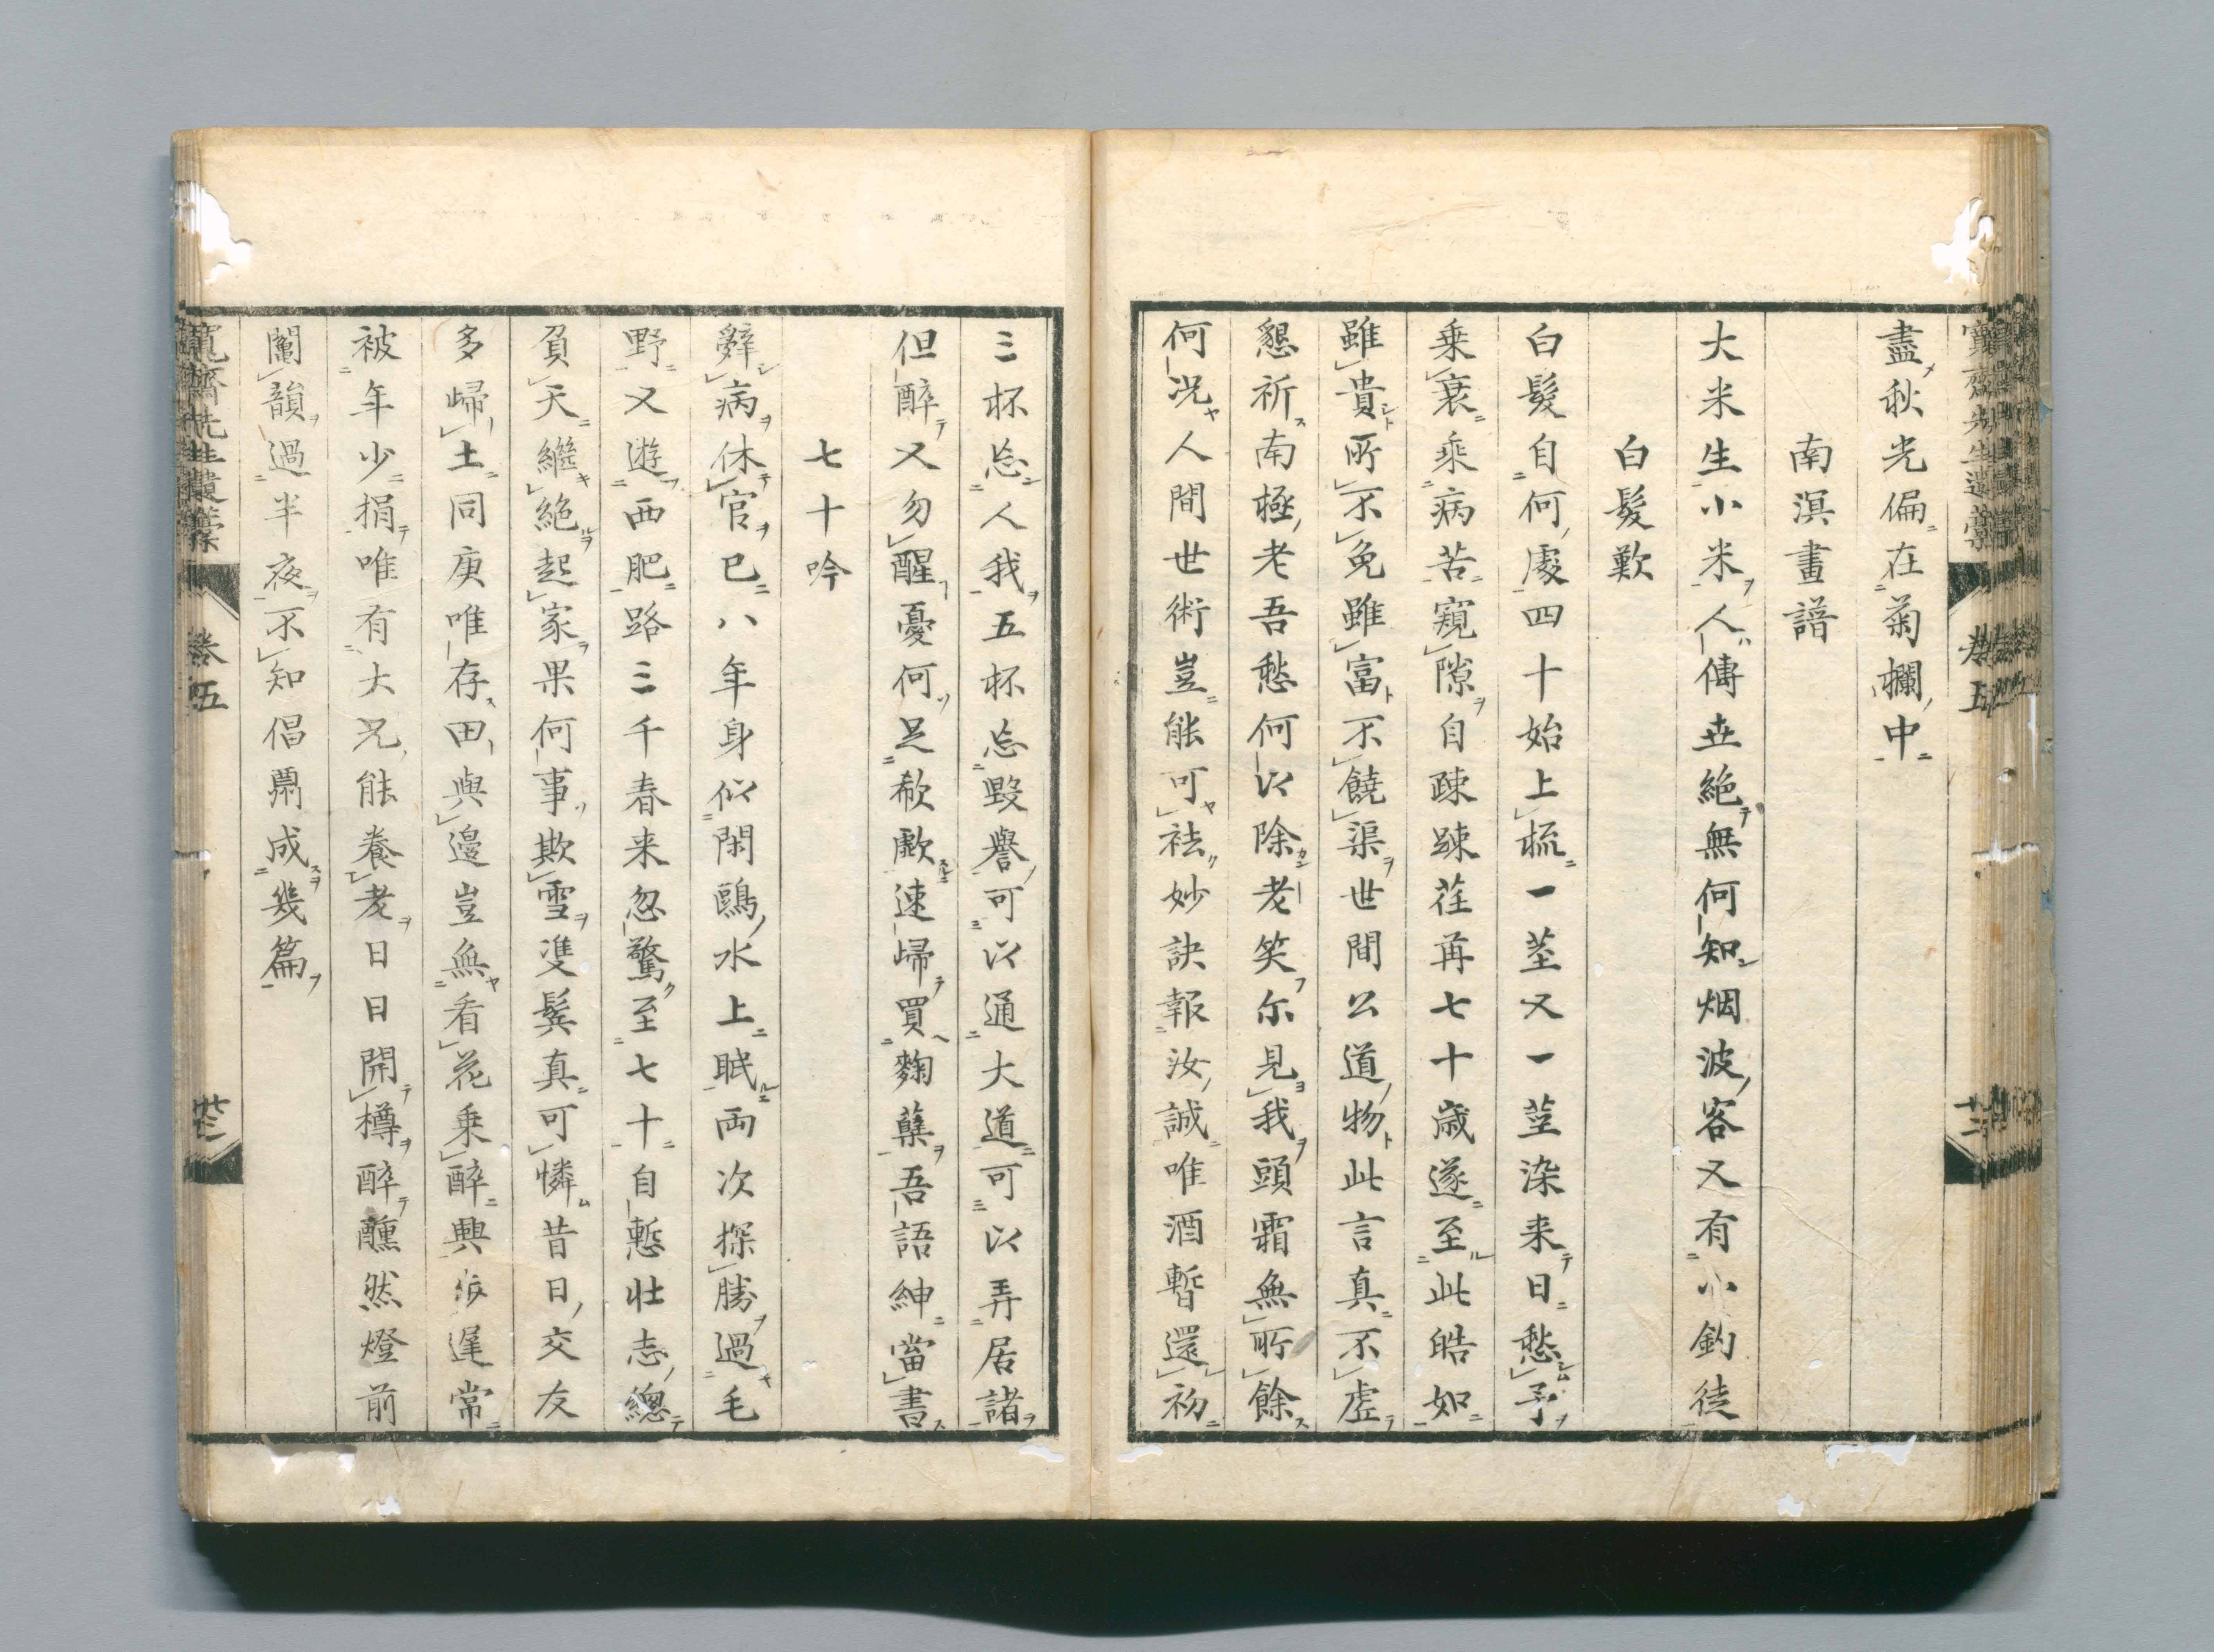 盡秋光偏在菊欄中
南溟畫譜
大米生小米人傳世絶無何知烟波客又有小釣徒
白髮歎
白髮自何處四十始上梳一莖又一莖染来日愁予
乗衰乘病苦窺隙自疎踈荏苒七十歳遂至此皓如
雖貴所不免雖富不饒渠世間公道物此言真不虚
懇祈南極老吾愁何以除老笑尓見我頭霜無所餘
何況人間世術豈能可祛妙訣報汝誠唯酒暫還初
三杯忘人我五杯忘毀譽可以通大道可以弄居諸
但醉又勿醒憂何足欷歔速歸買麴蘖吾語紳當書
七十吟
辤病休官已八年身似閑鷗水上眠両次探勝過毛
野又遊西肥路三千春来忽驚至七十自慙壮志總
負天繼絶起家果何事欺雪雙鬂真可憐昔日交友
多歸土同庚唯存田與邊豈無看花乗醉興遅常
被年少捐唯有大兄能養老日日開樽醉醺然燈前
闔韻過半夜不知倡罽成幾篇
寬齋先生遺藁 卷五 廿三